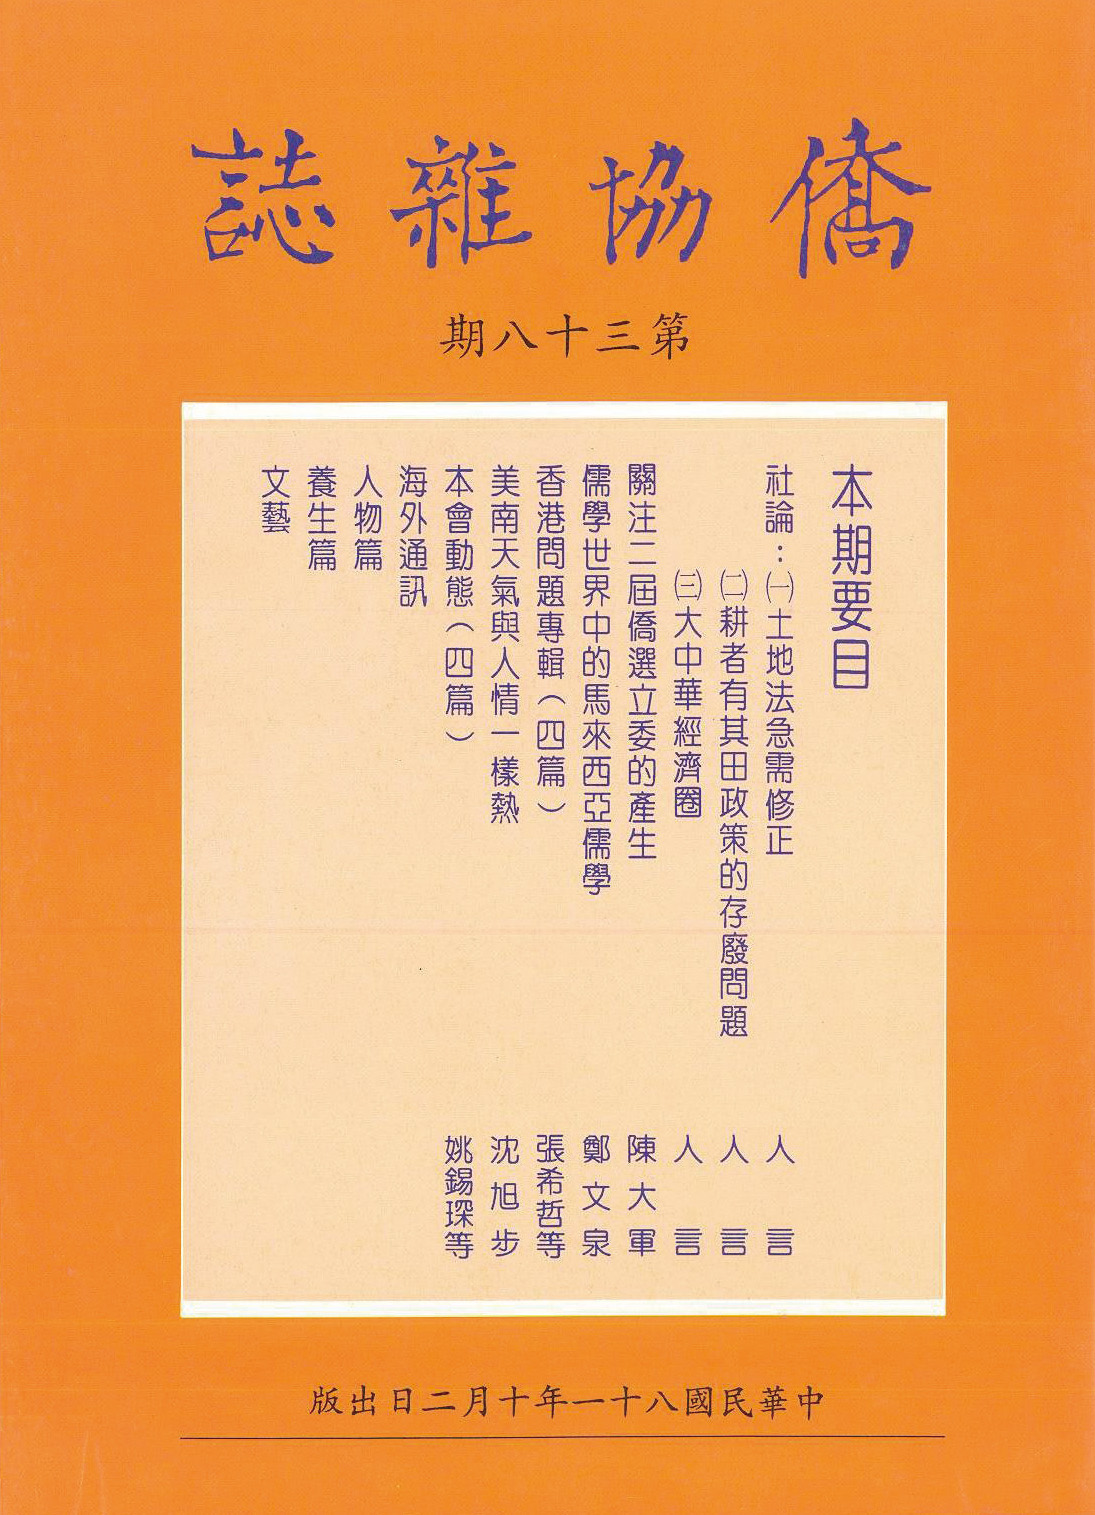 僑協雜誌
第三十八期
本期要目
社論：㈠土地法急需修正 人言
㈡耕者有其田政策的存廢問題 人言
㈢大中華經濟圈 人言
關注二屆僑選立委的產生 陳大軍
儒學世界中的馬來西亞儒學 鄭文泉
香港問題專輯（四篇） 張希哲等
美南天氣與人情一樣熱 沈旭步
本會動態（四篇） 姚錫琛等
海外通訊
人物篇
養生篇
文藝
中華民國八十一年十月二日出版